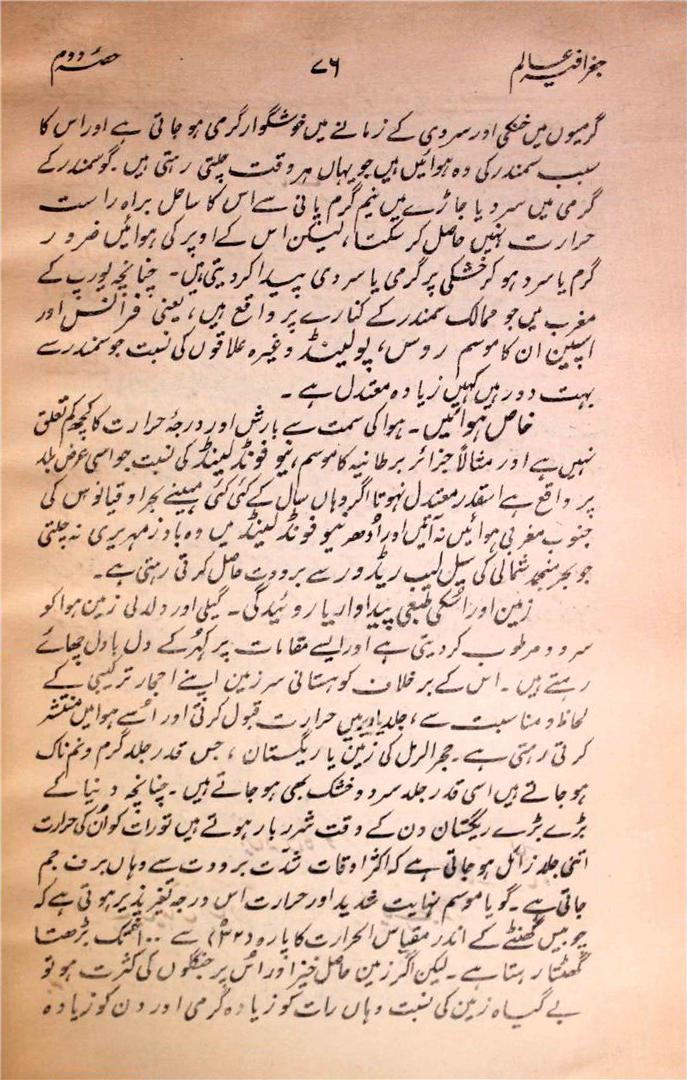 جغرافیہ عالم ۷۶ حصہ دوم
گرمیوں میں خنکی اور سردی کے زمانے میں خوشگوار گرمی ہو جاتی ہے اور اس کا
سبب سمندر کی وہ ہوائیں ہیں جو یہاں ہر وقت چلتی رہتی ہیں۔ گو سمندر کے
گرمی میں سرد یا جاڑے میں نیم گرم پانی سے اس کا ساحل براہ راست
حرارت نہیں حاصل کر سکتا، لیکن اس کے اوپر کی ہوائیں ضرور
گرم یا سرد ہو کر خشکی پر گرمی یا سردی پیدا کر دیتی ہیں۔ چنانچہ یورپ کے
مغرب میں جو ممالک سمندر کے کنارے پر واقع ہیں، یعنی فرانس اور
اسپین ان کا موسم روس، پولینڈ وغیرہ علاقوں کی نسبت جو سمندر سے
بہت دور ہیں کہیں زیادہ معتدل ہے۔
خاص ہوائیں۔ ہوا کی سمت سے بارش اور درجۂ حرارت کا کچھ کم تعلق
نہیں ہے اور مثالاً جزائر برطانیہ کا موسم، نیو فونڈ لینڈ کی نسبت جو اسی عرض بلد
پر واقع ہے اسقدر معتدل نہوتا اگر وہاں سال کے کئی کئی مہینے بحر اوقیانوس کی
جنوب مغربی ہوائیں نہ آتیں اور اُدھر نیو فونڈ لینڈ میں وہ باد زمہریری نہ چلتی
جو بحر منجمد شمالی کی سیل لیب ریڈور سے برودت حاصل کرتی رہتی ہے۔
زمین اور اسکی طبعی پیداوار یا روئیدگی۔ گیلی اور دلدلی زمین ہوا کو
سرد و مرطوب کر دیتی ہے اور ایسے مقامات پر کہر کے دل بادل چھائے
رہتے ہیں۔ اس کے برخلاف کوہستانی سرزمین اپنے احجار ترکیبی کے
لحاظ و مناسبت سے، جلد یا دیر میں حرارت قبول کرتی اور اُسے ہوا میں منتشر
کرتی رہتی ہے۔ حجر الرمل کی زمین یا ریگستان، جس قدر جلد گرم و نم ناک
ہو جاتے ہیں اسی قدر جلد سرد و خشک بھی ہو جاتے ہیں۔ چنانچہ دنیا کے
بڑے بڑے ریگستان دن کے وقت شرر بار ہوتے ہیں تو رات کو اُن کی حرارت
اتنی جلد زائل ہو جاتی ہے کہ اکثر اوقات شدّت برودت سے وہاں برف جم
جاتی ہے۔ گویا موسم نہایت شدید اور حرارت اس درجہ تغیر پذیر ہوتی ہے کہ
چوبیس گھنٹے کے اندر مقیاس الحرارت کا پارہ (۳۲) سے تک بڑھتا
گھٹتا رہتا ہے۔ لیکن اگر زمین حاصل خیز اور اُس پر جنگلوں کی کثرت ہو تو
بے گیاہ زمین کی نسبت وہاں رات کو زیادہ گرمی اور دن کو زیادہ